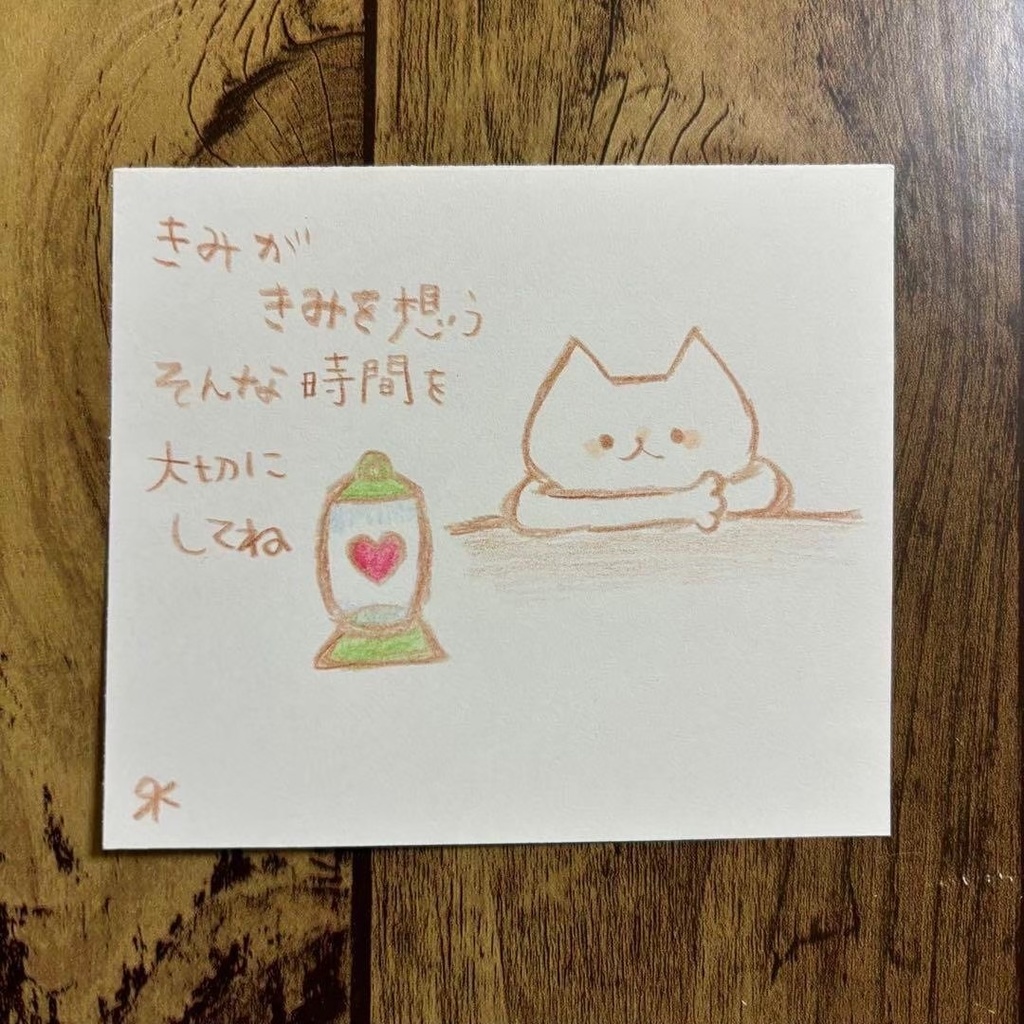 きみが
きみを想う
そんな時間を
大切に
してね